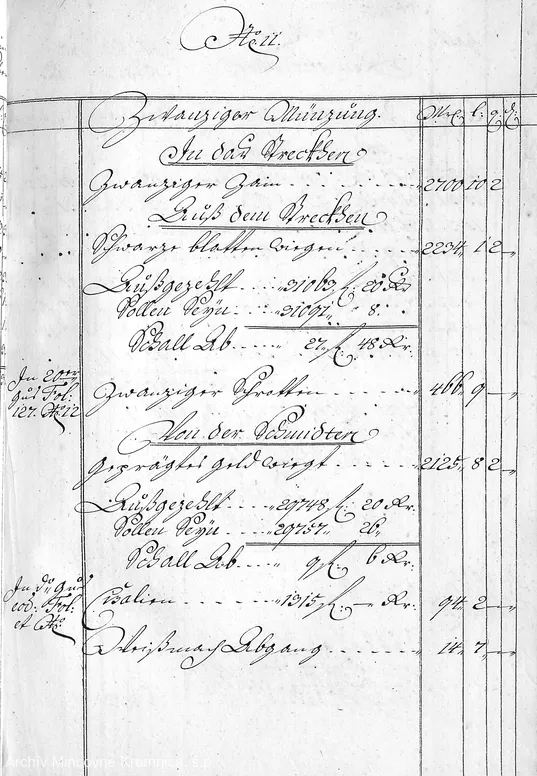 No: 11.
Zwanziger Münzung. Mr: l: q: d:
In das Streckhen
Zwanziger Zain - - - - - 2700 10 2
Auß dem Streckhen
Schwarze blatten wiegen - - - - 2234 1 2 -
Außgezehlt - - - 31063 f: 20 Kr
Sollen Seyn - - 31091 " 8.
Schall Ab - - - - 27 f: 48 Kr.
In 20er
Guß Fol:
127. No: 12
Zwanziger Schrotten - - - - 466 9 - -
Von der Schmidten
Geprägtes Geld wiegt - - - - 2125 8 2 -
Außgezehlt - - - - 29748 f: 20 Kr.
Sollen Seyn - - - 29757 " 26 "
Schall Ab - - - 9 f: 6 Kr.
In d: Guß
eod: Fol:
et No:
Cisalien - - - - 1315 f: - Kr: 94 2 - -
Weißmach Abgang - - - - 14 7 - -
Archív Mincovne Kremnica, š.p.